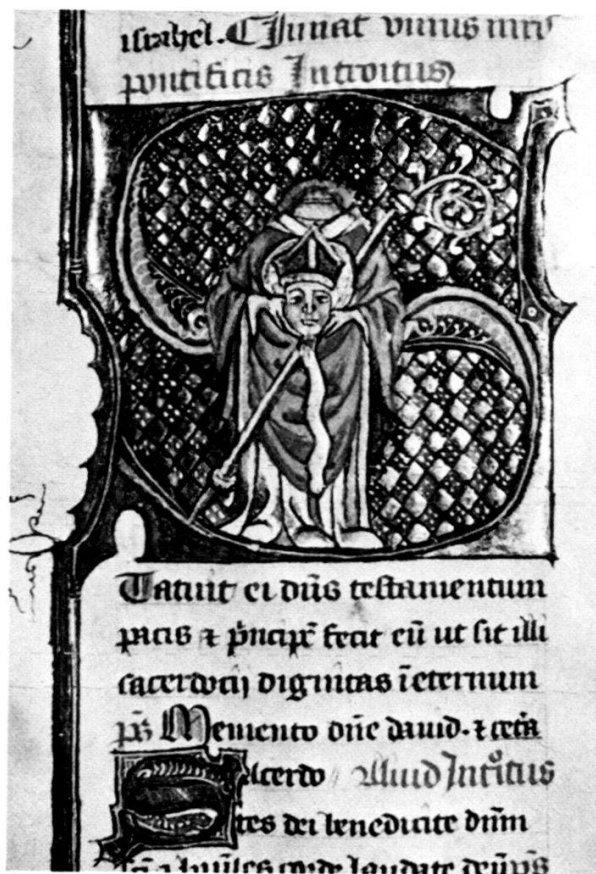 israhel. Iunat unius
pontificis Introitus
Tatuit ei dñs testamentum
pacis ⁊ pͥncipẽ fecit eũ ut sit illi
sacerdocij dignitas ĩeternum
p̃s Memento dñe dauid. ⁊ cetͣa
Sacerdo Aliud Introitus
tes dei benedicite dñm
sc̃i ⁊ corde laudate deũ p̃s